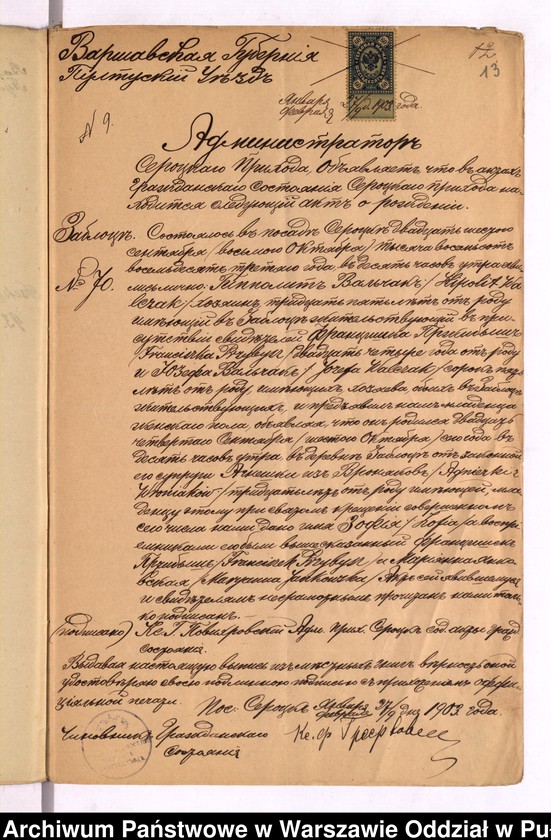 Варшавская Губернія
Пултускій Уѣздъ
12
13
Января
Февраля 1903 года.
N 9.
Администраторъ
Сероцкаго Прихода, Объявляетъ что въ актахъ
Гражданскаго Состоянія Сероцкаго прихода на-
ходится слѣдующій актъ о рожденіи.
Заблоцъ. Состоялось въ посадѣ Сероцкъ двадцать шестого
№ 70. Сентября /восьмого Октября/ тысяча восемьсотъ
восемьдесятъ третьяго года въ десять часовъ утра. Яви
лся лично: Гипполитъ Вальчакъ /Hipolit Wa
lczak/ хозяинъ, тридцать пять лѣтъ отъ роду
имѣющій въ Заблоцѣ жительствующій въ при-
сутствіи свидѣтелей Францишка
/Franciszka Przybysz/ двадцать четыре года отъ роду
и Юзефа Вальчакъ /Józefa Walczak/ сорокъ
лѣтъ отъ роду имѣющихъ, хозяева обоихъ въ Заблоцѣ
жительствующихъ, и предъявилъ намъ младенца
женскаго пола, объявляя, что онъ родился двадцать
четвертаго Сентября /шестого Октября/ сего года въ
десять часовъ утра, въ деревнѣ Заблоцъ отъ законной
его супруги Агнешки изъ /Agnieszki z
отъ роду имѣющей, мла-
денцу этому при святомъ крещеніи совершенномъ
сего числа нами дано имя Зофія /Zofia/ а воспрі-
емниками его были вышесказанный Францишекъ
/Franciszek Przybysz/ и Маріанна
/Maryanna Актъ сей объявляющему
и свидѣтелямъ неграмотнымъ прочитанъ, нами толь-
ко подписанъ. —
(подписано) Кс. І. Адм. прих. Сероцкъ сод. акты гражд.
состоянія.
Выдавая настоящую выпись изъ мѣстныхъ книгъ вѣрность оной
удостовѣряю своею подписью съ приложеніемъ оффи-
ціальной печати. Пос. Сероцкъ Января
Февраля дня 1903 года.
Чиновникъ Гражданскаго
Состоянія
Кс. Ф.
Archiwum Państwowe w Warszawie Oddział w Pu